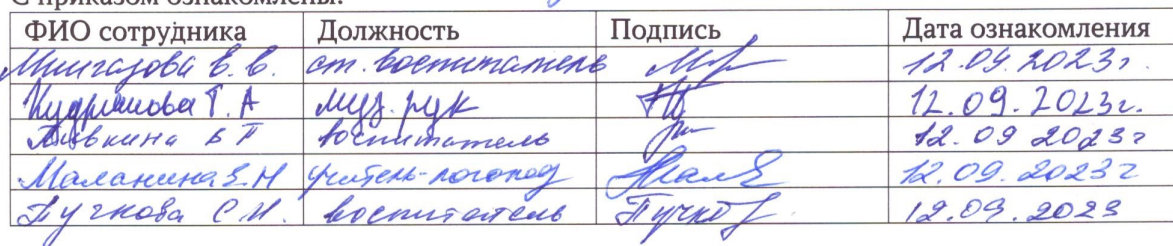 С приказом ознакомлены:
ФИО сотрудника Должность Подпись Дата ознакомления
Мингазова В. В. ст. воспитатель 12.09.2023г.
Кудряшова Т. А муз. рук 12.09.2023г.
воспитатель 12.09 2023г
Маланина Е.Н учитель-логопед 12.09.2023г
Пучкова С.И. воспитатель Пучко 12.09.2023